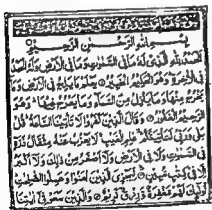 بسم الله الرحمن الرحيم
الحمد لله الذي له ما في السموات وما في الارض وله الحمد
في الاخرة وهو الحكيم الخبير يعلم ما يلج في الارض وما
يخرج منها وما ينزل من السماء وما يعرج فيها وهو
الرحيم الغفور وقال الذين كفروا لا تأتينا الساعة قل
بلى وربي لتأتينكم علم الغيب لا يعزب عنه مثقال ذرة
في السموت ولا في الارض ولا اصغر من ذلك ولا اكبر
الا في كتب مبين ليجزي الذين امنوا وعملوا الصلحت
اولئك لهم مغفرة ورزق كريم والذين سعو في ايتنا